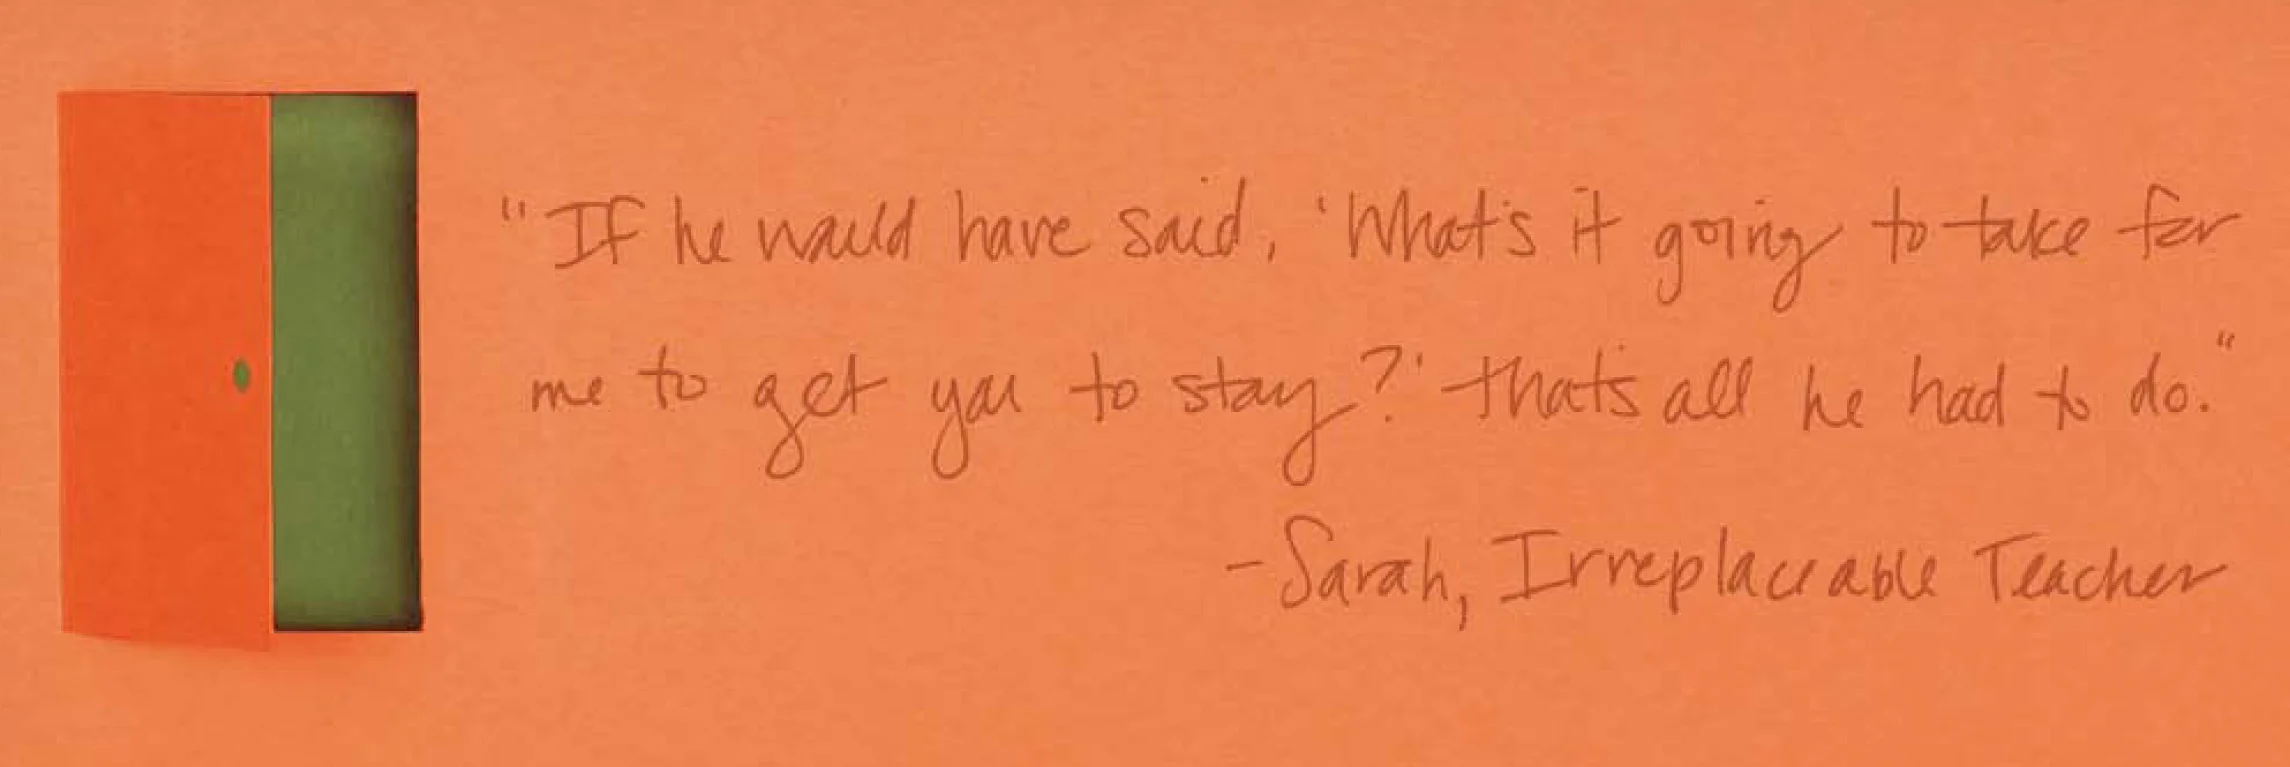 "If he would have said, 'What's it going to take for
me to get you to stay?' that's all he had to do."
-Sarah, Irreplaceable Teacher